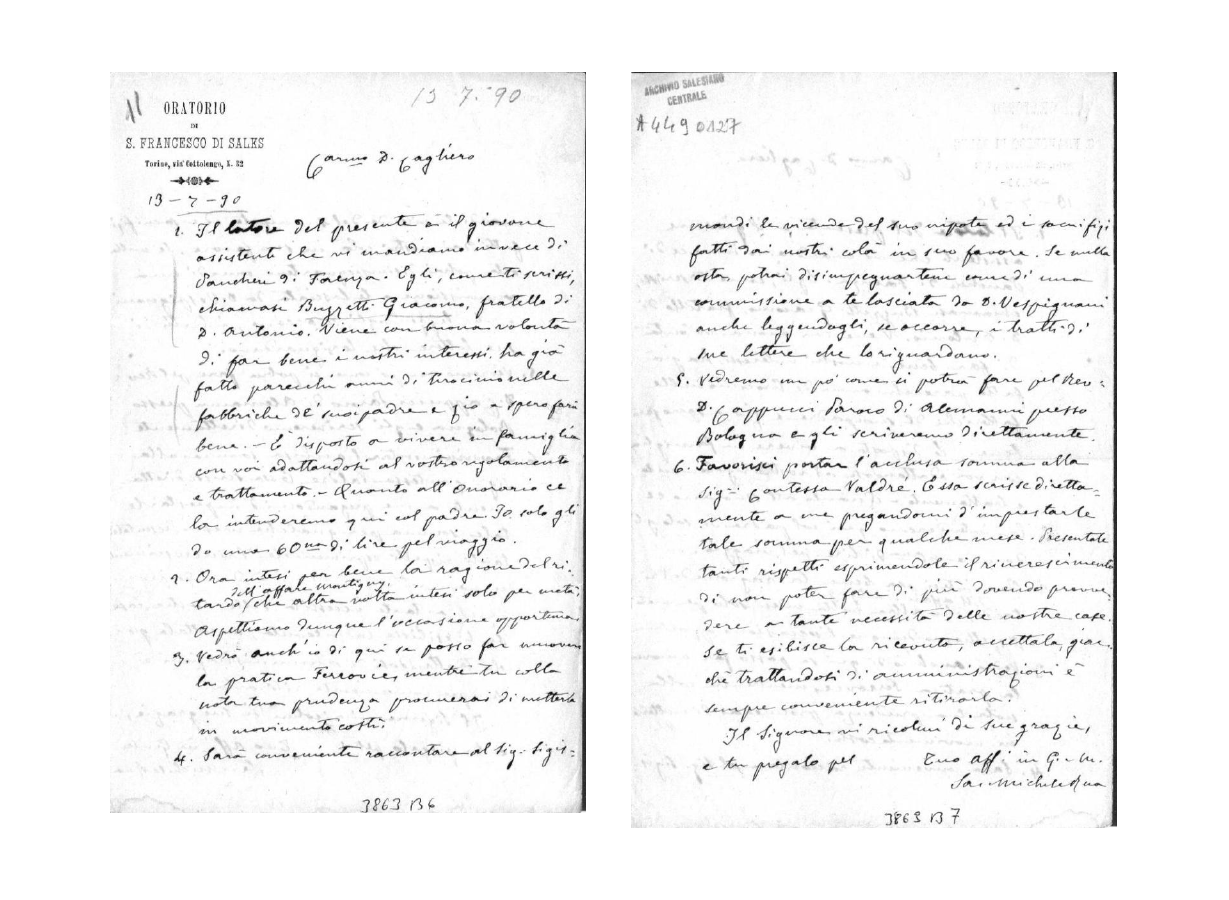 11
ORATORIO
DI
S. FRANCESCO DI SALES
Torino, via Cottolengo, N. 32
13 7.º 90
Carmo D. Cagliero
13 - 7 - 90
1. Il latore del presente è il giovane
assistente che vi mandiamo invece di
di Faenza. Egli, come ti scrissi,
chiamasi Buzzetti Giacomo, fratello di
D. Antonio. Viene con buona volontà
di far bene i nostri interessi, ha già
fatto parecchi anni di tirocinio nelle
fabbriche de' suoi padre e zio e spero farà
bene. - È disposto a vivere in famiglia
con voi adattandosi al vostro regolamento
e trattamento. - Quanto all'onorario ce
la intenderemo qui col padre. Io solo gli
do una 60na di lire pel viaggio.
2. Ora intesi per bene la ragione del ri-
dell'affare Montigny,
tardo che altra volta intesi solo per metà.
Aspettiamo dunque l'occasione opportuna
3. Vedrò anch'io di qui se posso far muovere
la pratica Ferrovie, mentre tu colla
nota tua prudenza procurerai di metterla
in movimento costì.
4. Sarà conveniente raccontare al Sig. Sigis=
3863 B 6
ARCHIVIO SALESIANO
CENTRALE
A 449 0127
mondi le vicende del suo nipote ed i sacrifizi
fatti dai nostri colà in suo favore. Se nulla
osta potrai disimpegnartene come di una
commissione a te lasciata da D. Vespignani
anche leggendogli, se occorre, i tratti di
sue lettere che lo riguardano.
5. Vedremo un po' come si potrà fare pel Rev.
D. Cappucci Paroco di Alemanni presso
Bologna e gli scriveremo direttamente.
6. Favorisci portar l'acclusa somma alla
Sig.ra Contessa Valdré. Essa scrisse diretta=
mente a me pregandomi d'imprestarle
tale somma per qualche mese. Presentate
tanti rispetti esprimendole il rincrescimento
di non poter fare di più dovendo provve-
dere a tante necessità delle nostre case.
Se ti esibisce la ricevuta, accettala, giac-
chè trattandosi di amministrazioni è
sempre conveniente ritirarla.
Il Signore vi ricolmi di sue grazie,
e tu pregalo pel Tuo aff. in G. e M.
Sac. Michele Rua
3863 B 7